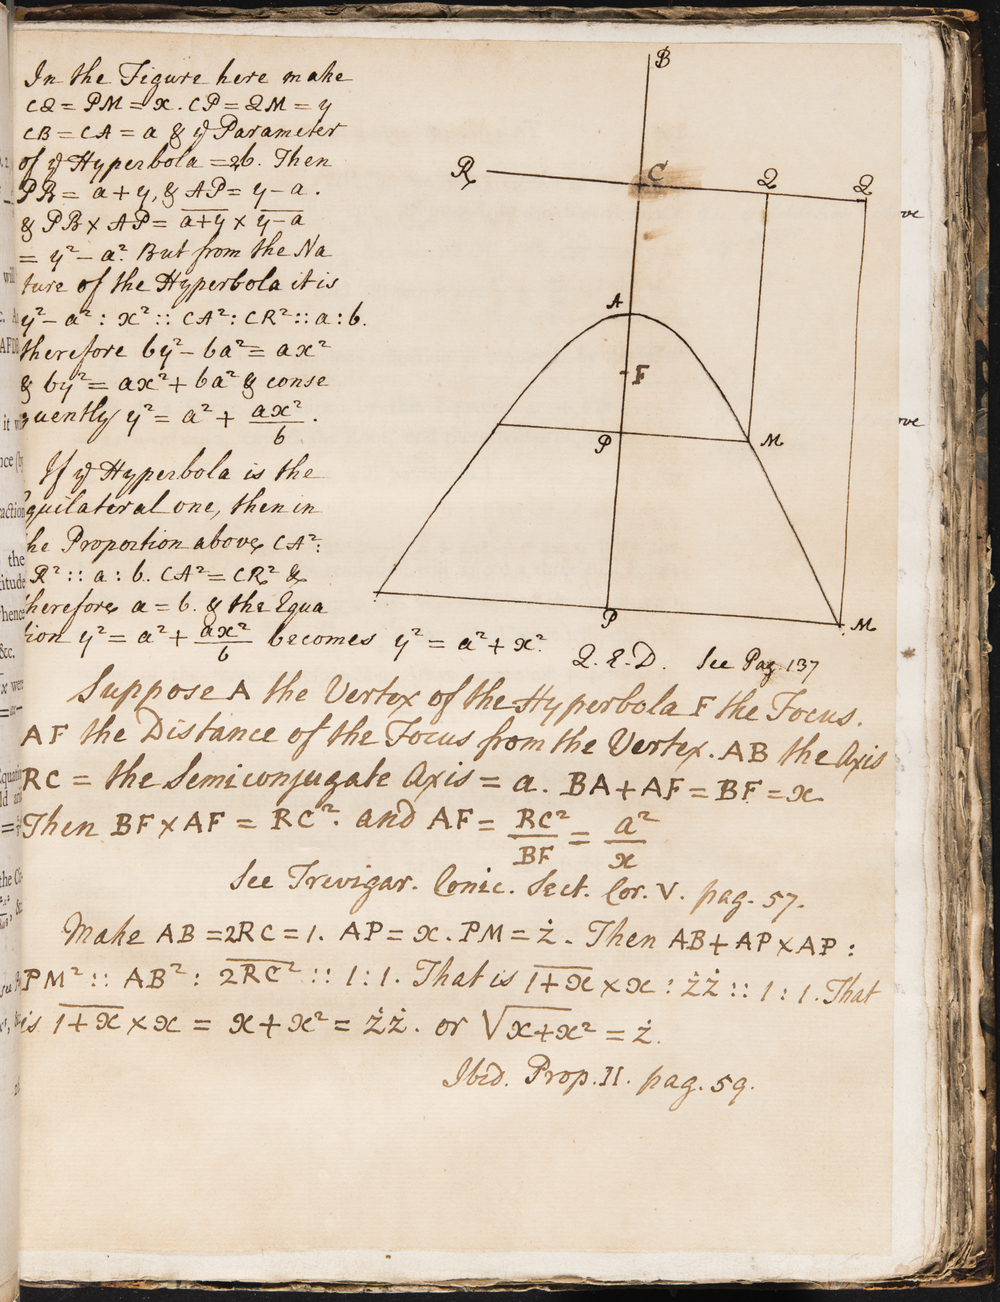 In the Figure here make
CQ = PM = x. CP = QM = y
CB = CA = a & yͤ Parameter
of yͤ Hyperbola = 2b. Then
PB = a + y, & AP = y − a.
& PB × AP = a+y × y−a
= y² − a². But from the Na
ture of the Hyperbola it is
y² − a² : x² :: CA² : CR² :: a : b.
therefore by² − ba² = ax²
& by² = ax² + ba² & conse
quently y² = a² + ax²/b.
If yͤ Hyperbola is the
Equilateral one, then in
the Proportion above, CA² :
R² :: a : b. CA² = CR² &
therefore a = b. & the Equa
tion y² = a² + ax²/b becomes y² = a² + x².
Q.E.D. See Pag. 137
B
R
C
Q
Q
A
F
P
M
P
M
Suppose A the Vertex of the Hyperbola F the Focus.
AF the Distance of the Focus from the Vertex. AB the Axis
RC = the Semiconjugate Axis = a. BA + AF = BF = x
Then BF × AF = RC². and AF = RC²/BF = a²/x
See Trevigar. Conic. Sect. Cor. V. pag. 57.
Make AB = 2RC = 1. AP = x. PM = ż. Then AB + AP × AP :
PM² :: AB² : 2RC² :: 1 : 1. That is 1+x × x : żż :: 1 : 1. That
is 1+x × x = x + x² = żż. or √x+x² = ż.
Ibid. Prop. II. pag. 59.
ove
ove
will
AFD
it w
action
the
itude
hence
&c.
x were